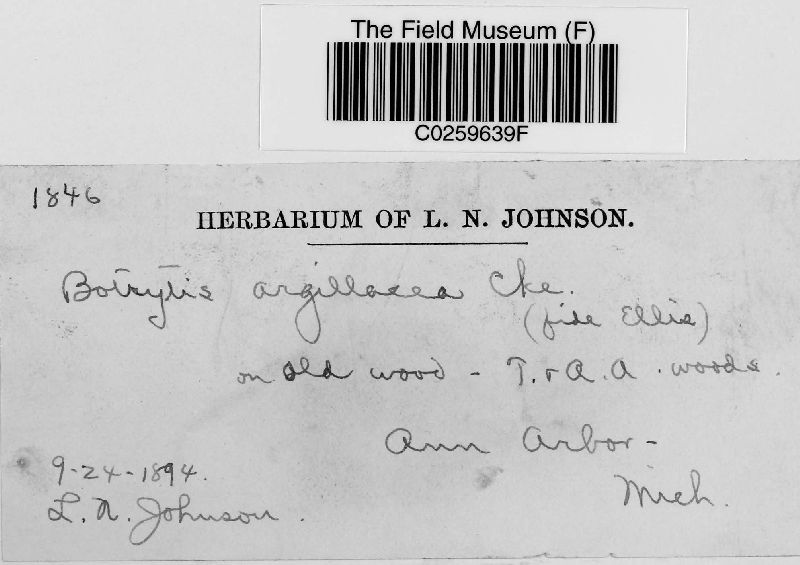 The Field Museum (F)
C0259639F
1846
HERBARIUM OF L. N. JOHNSON.
Botrytis argillacea Cke.
(fide Ellis)
on old wood - T. & A. A. woods.
Ann Arbor -
Mich.
9-24-1894.
L. N. Johnson.